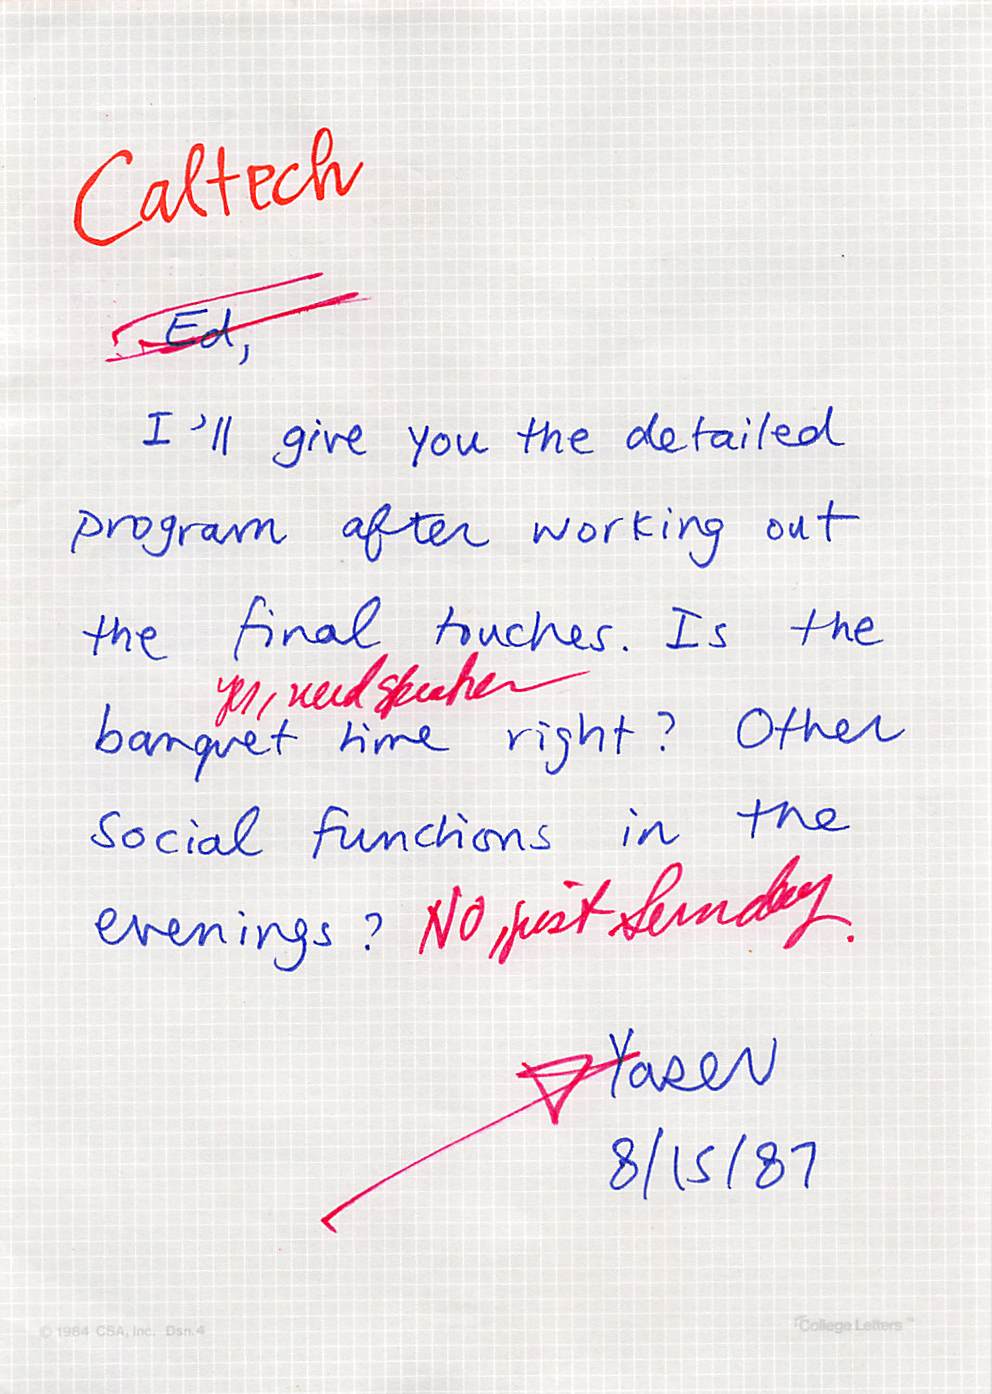 Caltech
Ed,
I'll give you the detailed
program after working out
the final touches. Is the
yes, need speaker
banquet time right? Other
Social functions in the
evenings? No, just Sunday.
Yaser
8/15/87
© 1984 CSA, Inc. Dsn.4
"College Letters"™